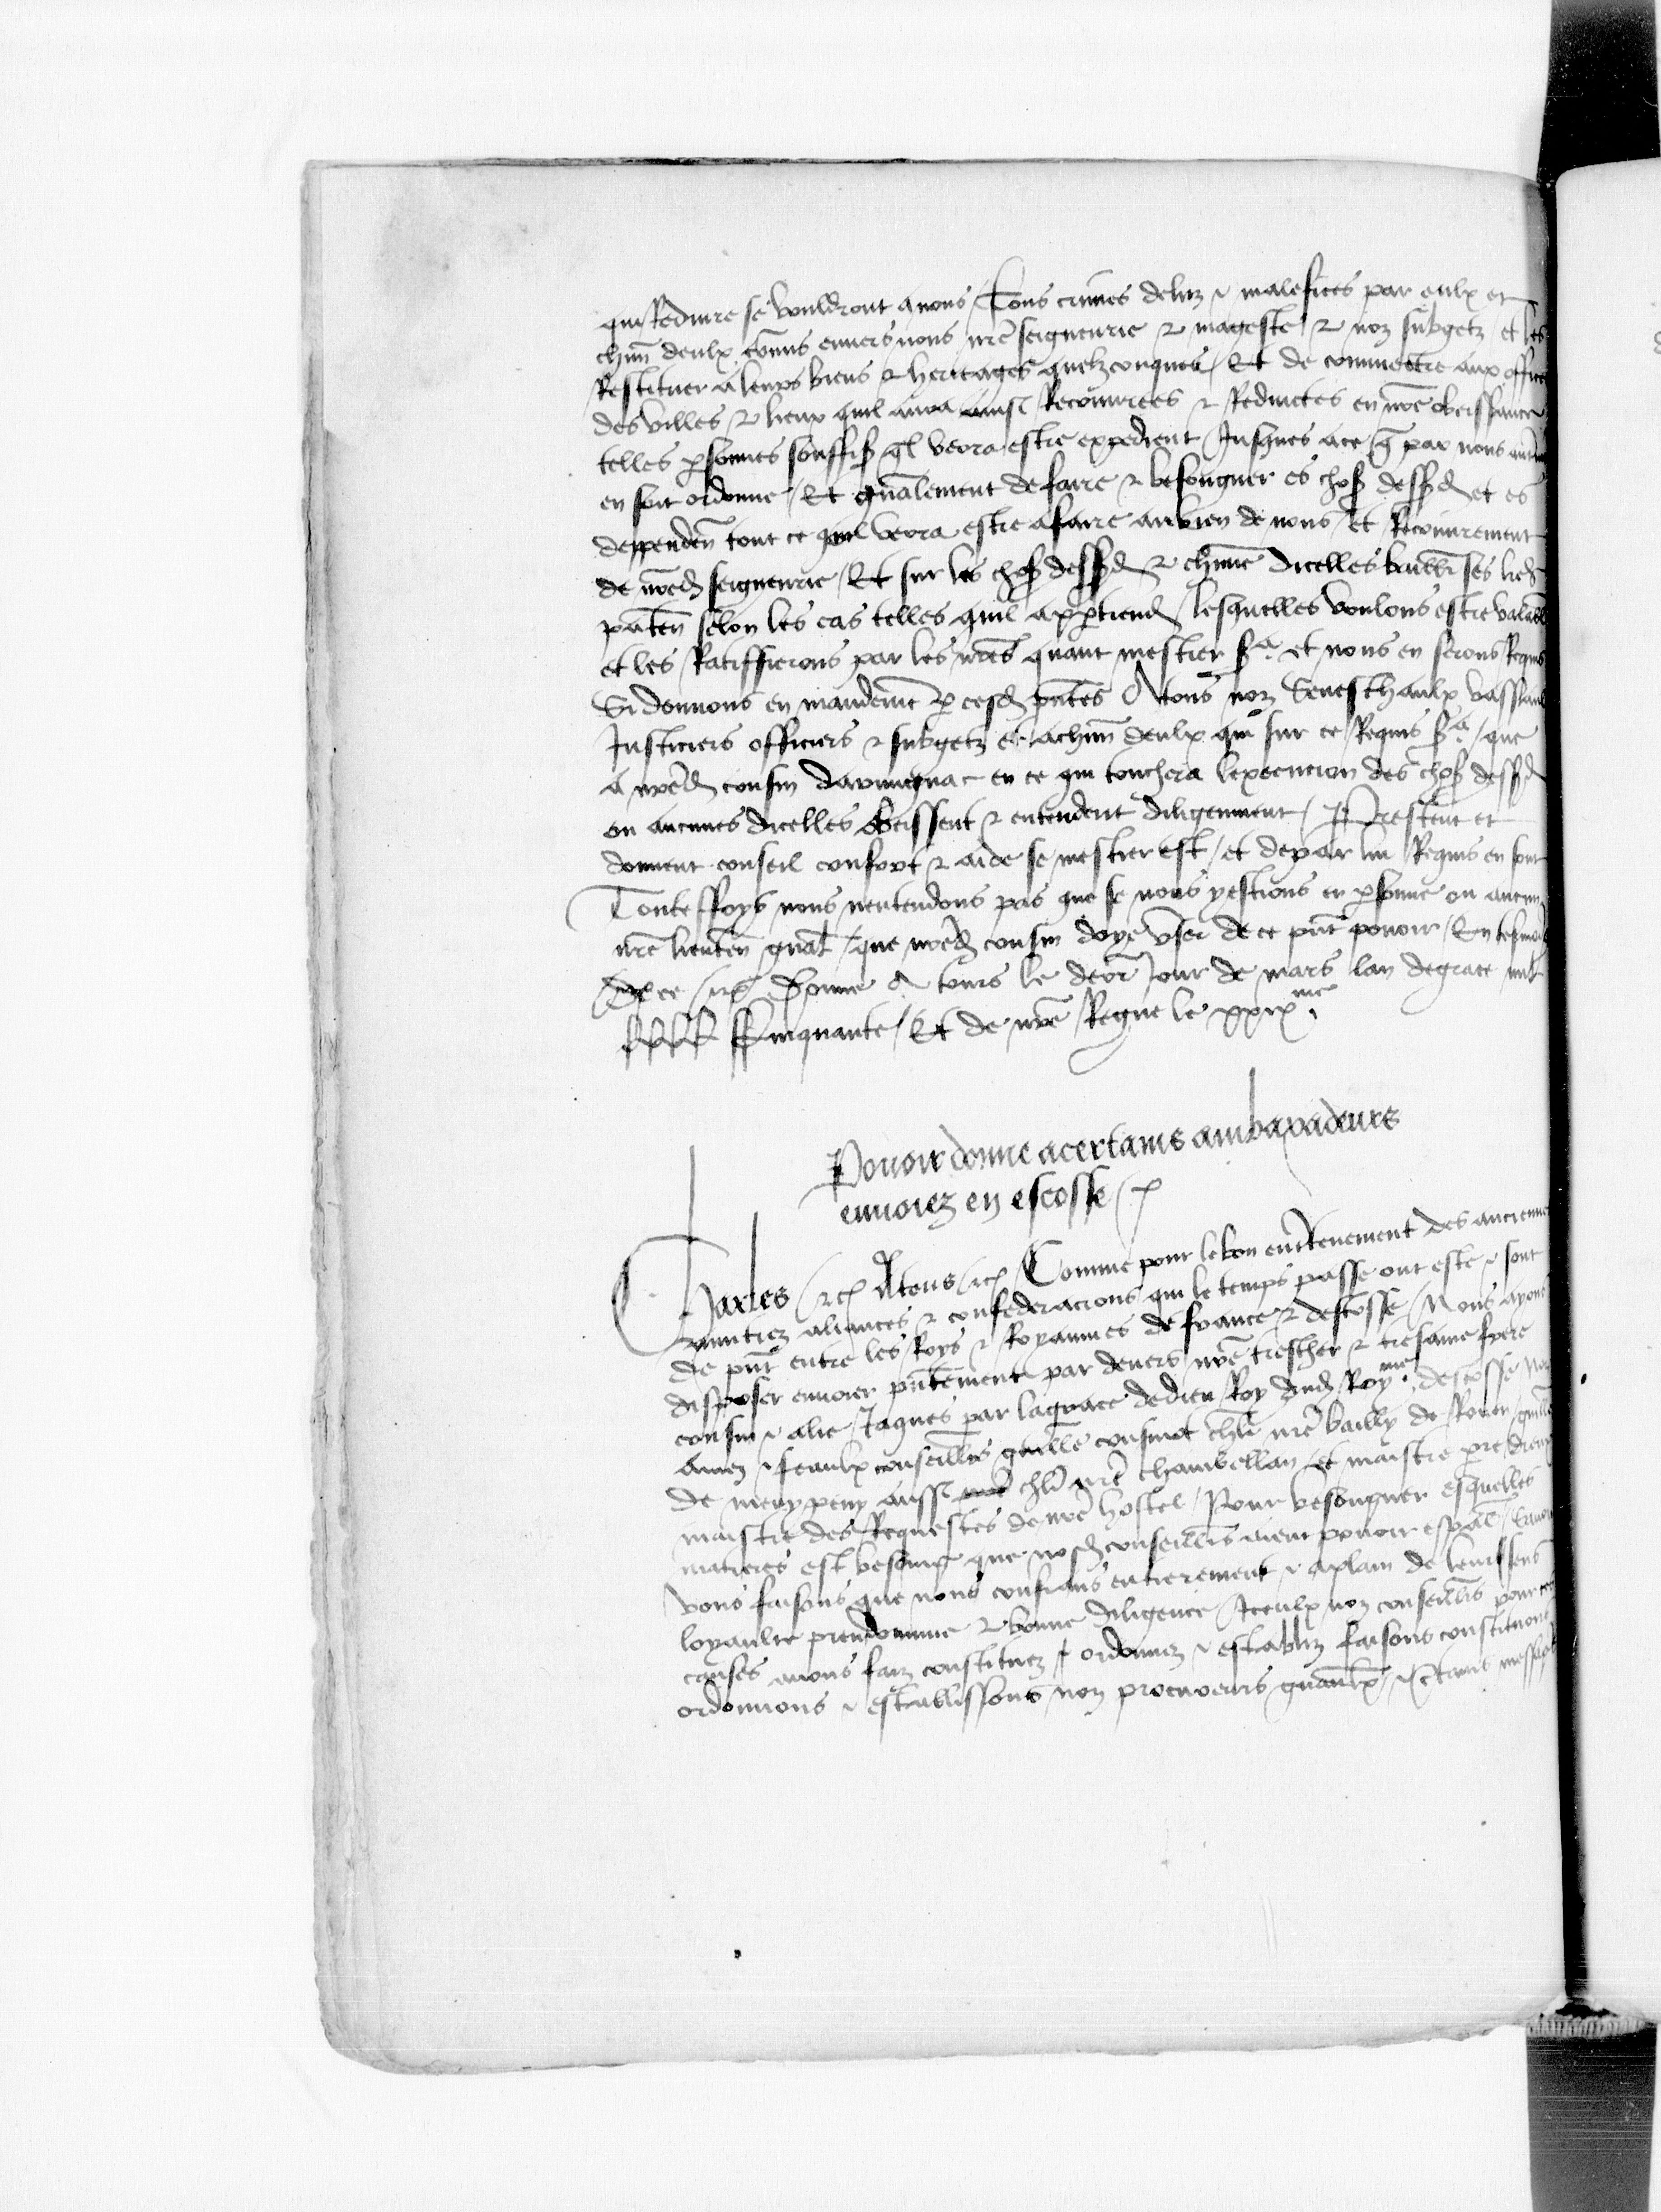 qui Reduire se vouldront a nous / Tous crimes deliz & malefices par eulx et
chũn deulx cõmis enuers nous nr̃e seigneurie & mageste & noz subgetz et les
Restituer a leurs biens & heritages quelzconques / Et de commectre aux office
des villes & lieux quil aura ainsi Recouurees & Reduictes en nr̃e obeissance
telles p̱sonnes souffis̱ ql̃ verra estre expedient Jusques a ce q̃ par nous autr̃m̃
en soit ordonne / Et gñalement de faire & besongner es chos̱ dess̱ḏ et es
deppendeñ tout ce quil verra estre a faire au bien de nous et Recouurement
de nr̃eḏ seigneurie / Et sur les chos̱ dess̱ḏ & chũne dicelles bailler ses lr̃es
pateñ selon les cas telles quil app̱tienḏ / lesquelles voulons estre valabl
et les Ratiffierons par les nr̃es quant mestier s̱a et nous en serons Requis
Si donnons en mandem̃t p̱ cesḏ pñtes A tous noz Seneschaulx vassaulx
Justiciers officiers & subgetz et a chũn deulx qui sur ce Requis s̱a / que
a nr̃eḏ cousin darmignac en ce qui touchera lexecucion des chos̱ dess̱ḏ
ou aucunes dicelles obeissent & entendent diligemment / Prestent et
donnent conseil confort & aide se mestier est / et de par lui Requis en sont
Touteffoys nous nentendons pas que se nous y estions en p̱sonne ou aucun
nr̃e lieuteñ gñal / que nr̃eḏ cousin doye vser de ce pñt pouoir / En tesmoi̱g
de ce &c̃ Donne A tours le derr̃ Jour de mars lan de grace mil
cccc Cinquante / Et de nr̃e Regne le xxixme.
Pouoir donne a certains ambaxadeurs
enuoiez en escosse
Charles &c̃ A tous &c̃ Comme pour le bon entr̃tenement des anciennes
amitiez aliances & confederacions qui le temps passe ont este & sont
de pñt entre les Roys & Royaumes de france & descosse / Nous ayons
disposer enuoier pñtement par deuers nr̃e trescher & tresame frere
cousin & alie Jaques par la grace de dieu Roy duḏ Royme. descosse noz
amez & feaulx conseill̃rs guill̃e cousinot chl̃r nr̃e bailly de Rouen / guill̃e
de menypeny aussi chl̃r nr̃e chambellan et maistre
maistre des Requestes de nr̃e hostel / Pour besongner esquelles
matieres est besoing que nosḏ conseill̃rs aient pouoir esp̱al / Sauoir
vous faisons que nous confians entierement & a plain de leurs sens
loyaulte preudommie & bonne diligence Iceulx noz conseill̃rs pour ces
causes auons faiz constituez ordonnez & establiz faisons constituons
ordonnons & establissons noz procureurs gñaulx & c̱tains messages